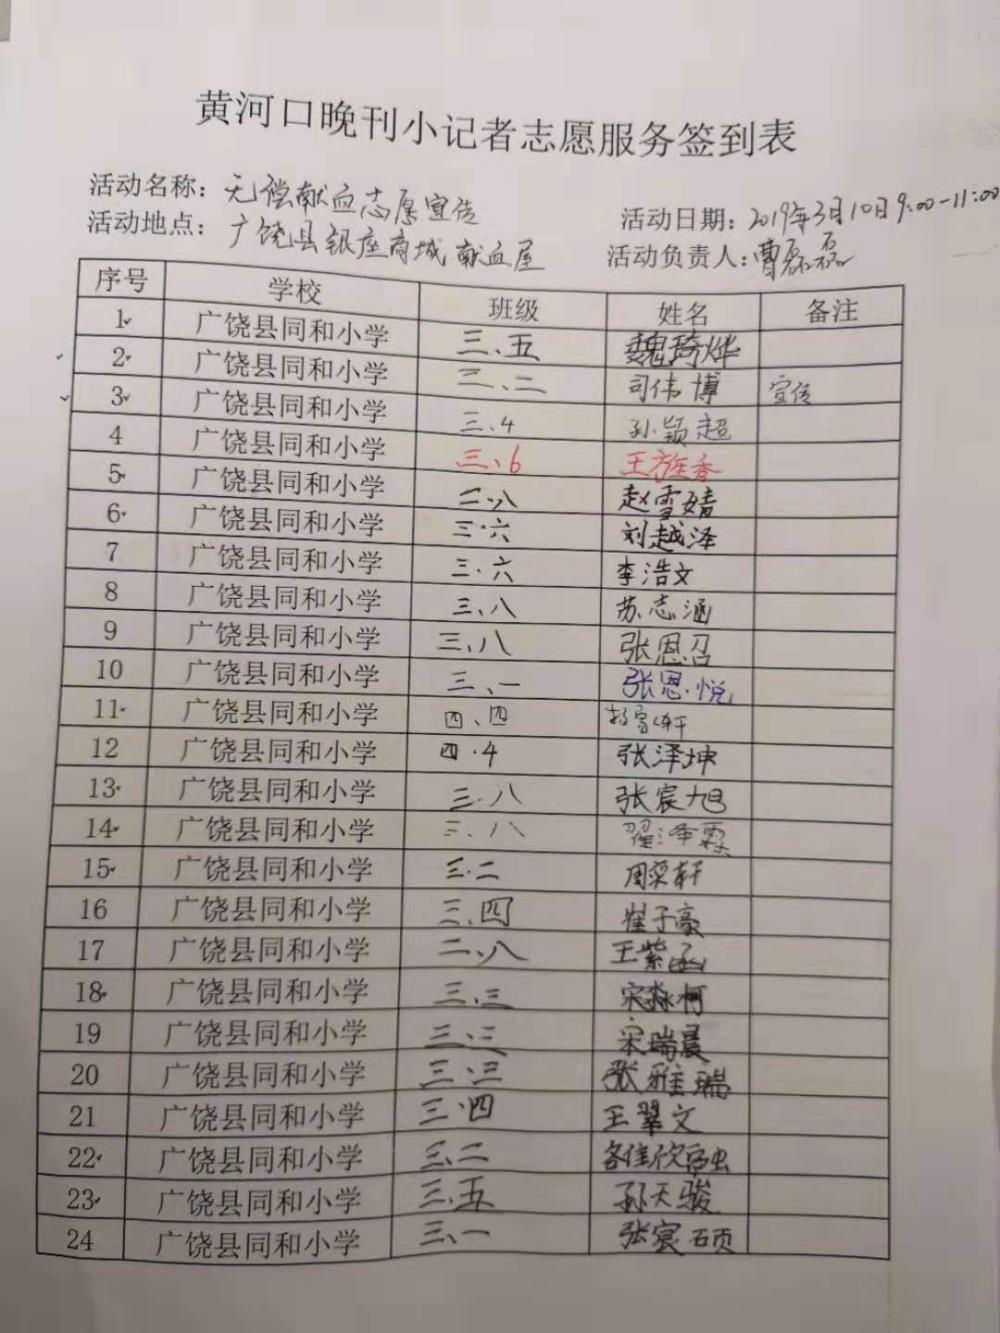 黄河口晚刊小记者志愿服务签到表
活动名称：无偿献血志愿宣传
活动日期：2019年3月10日9:00-11:00
活动地点：广饶县银座商城献血屋
活动负责人：曹磊磊
序号 学校 班级 姓名 备注
1 广饶县同和小学 三、五 魏琦烨
2 广饶县同和小学 三、二 司伟博 宣传
3 广饶县同和小学 三、4 孙颖超
4 广饶县同和小学 三、6 王
5 广饶县同和小学 二、八 赵雪婧
6 广饶县同和小学 三·六 刘越泽
7 广饶县同和小学 三·六 李浩文
8 广饶县同和小学 三、八 苏志涵
9 广饶县同和小学 三、八 张恩召
10 广饶县同和小学 三、一 张恩悦
11 广饶县同和小学 四、四
12 广饶县同和小学 四·4 张泽坤
13 广饶县同和小学 三·八 张宸旭
14 广饶县同和小学 三、八 翟泽霖
15 广饶县同和小学 三·二 周奕轩
16 广饶县同和小学 三、四 崔子豪
17 广饶县同和小学 二、八 王紫函
18 广饶县同和小学 三、三 宋淼柯
19 广饶县同和小学 三、三 宋瑞晨
20 广饶县同和小学 三·三 张雅瑞
21 广饶县同和小学 三·四 王翠文
22 广饶县同和小学 三、二
23 广饶县同和小学 三、五 孙天骏
24 广饶县同和小学 三、一 张宸硕